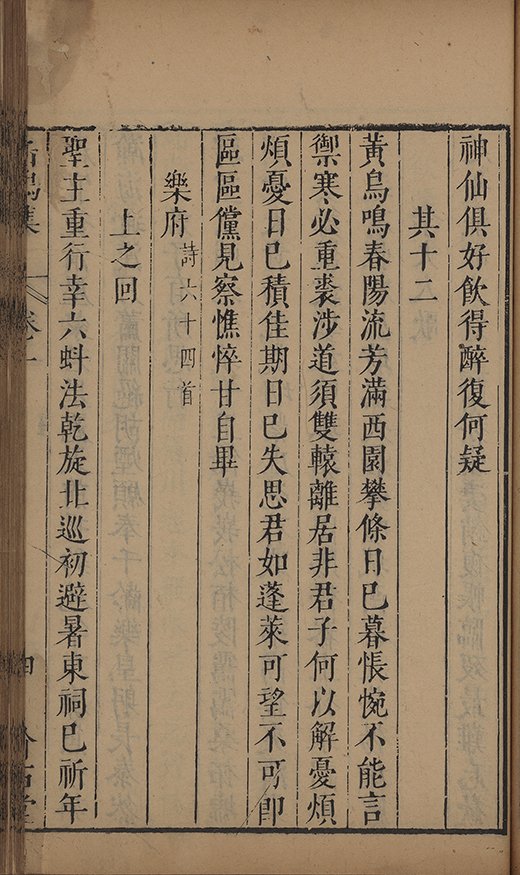 神仙俱好飲得醉復何疑
其十二
黃鳥鳴春陽流芳滿西園攀條日已暮悵惋不能言
禦寒必重裘涉道須雙轅離居非君子何以解憂煩
煩憂日已積佳期日已失思君如蓬萊可望不可即
區區儻見察憔悴甘自畢
樂府詩六十四首
上之回
聖主重行幸六蚪法乾旋北巡初避暑東祠已祈年
集 卷一 四